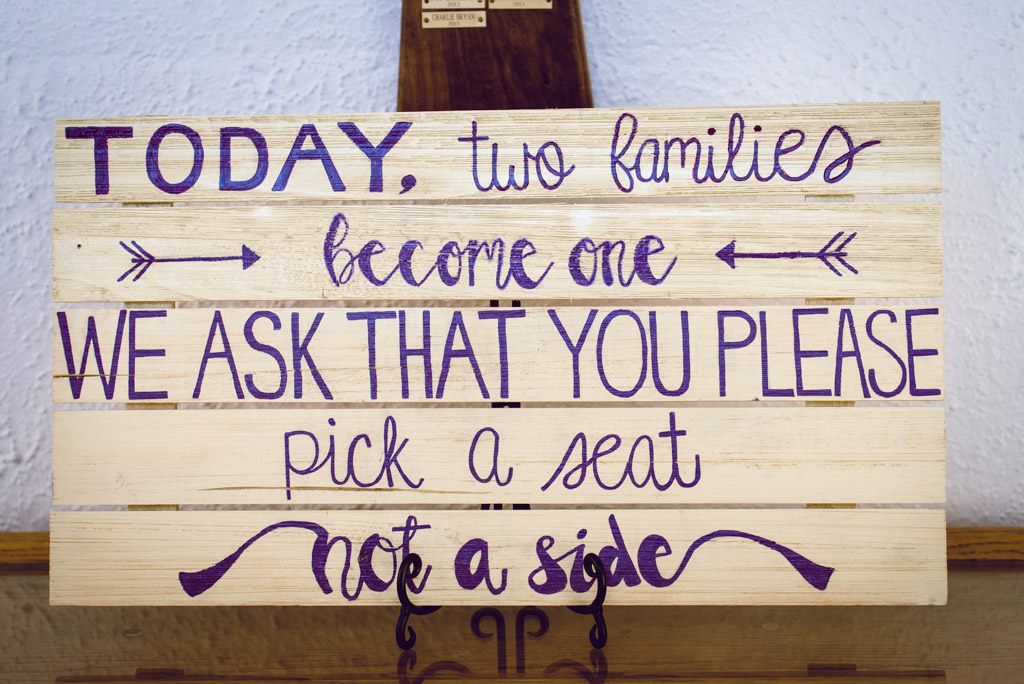 2013
2015
CHARLIE BRYAN
TODAY, two families
become one
WE ASK THAT YOU PLEASE
pick a seat
not a side